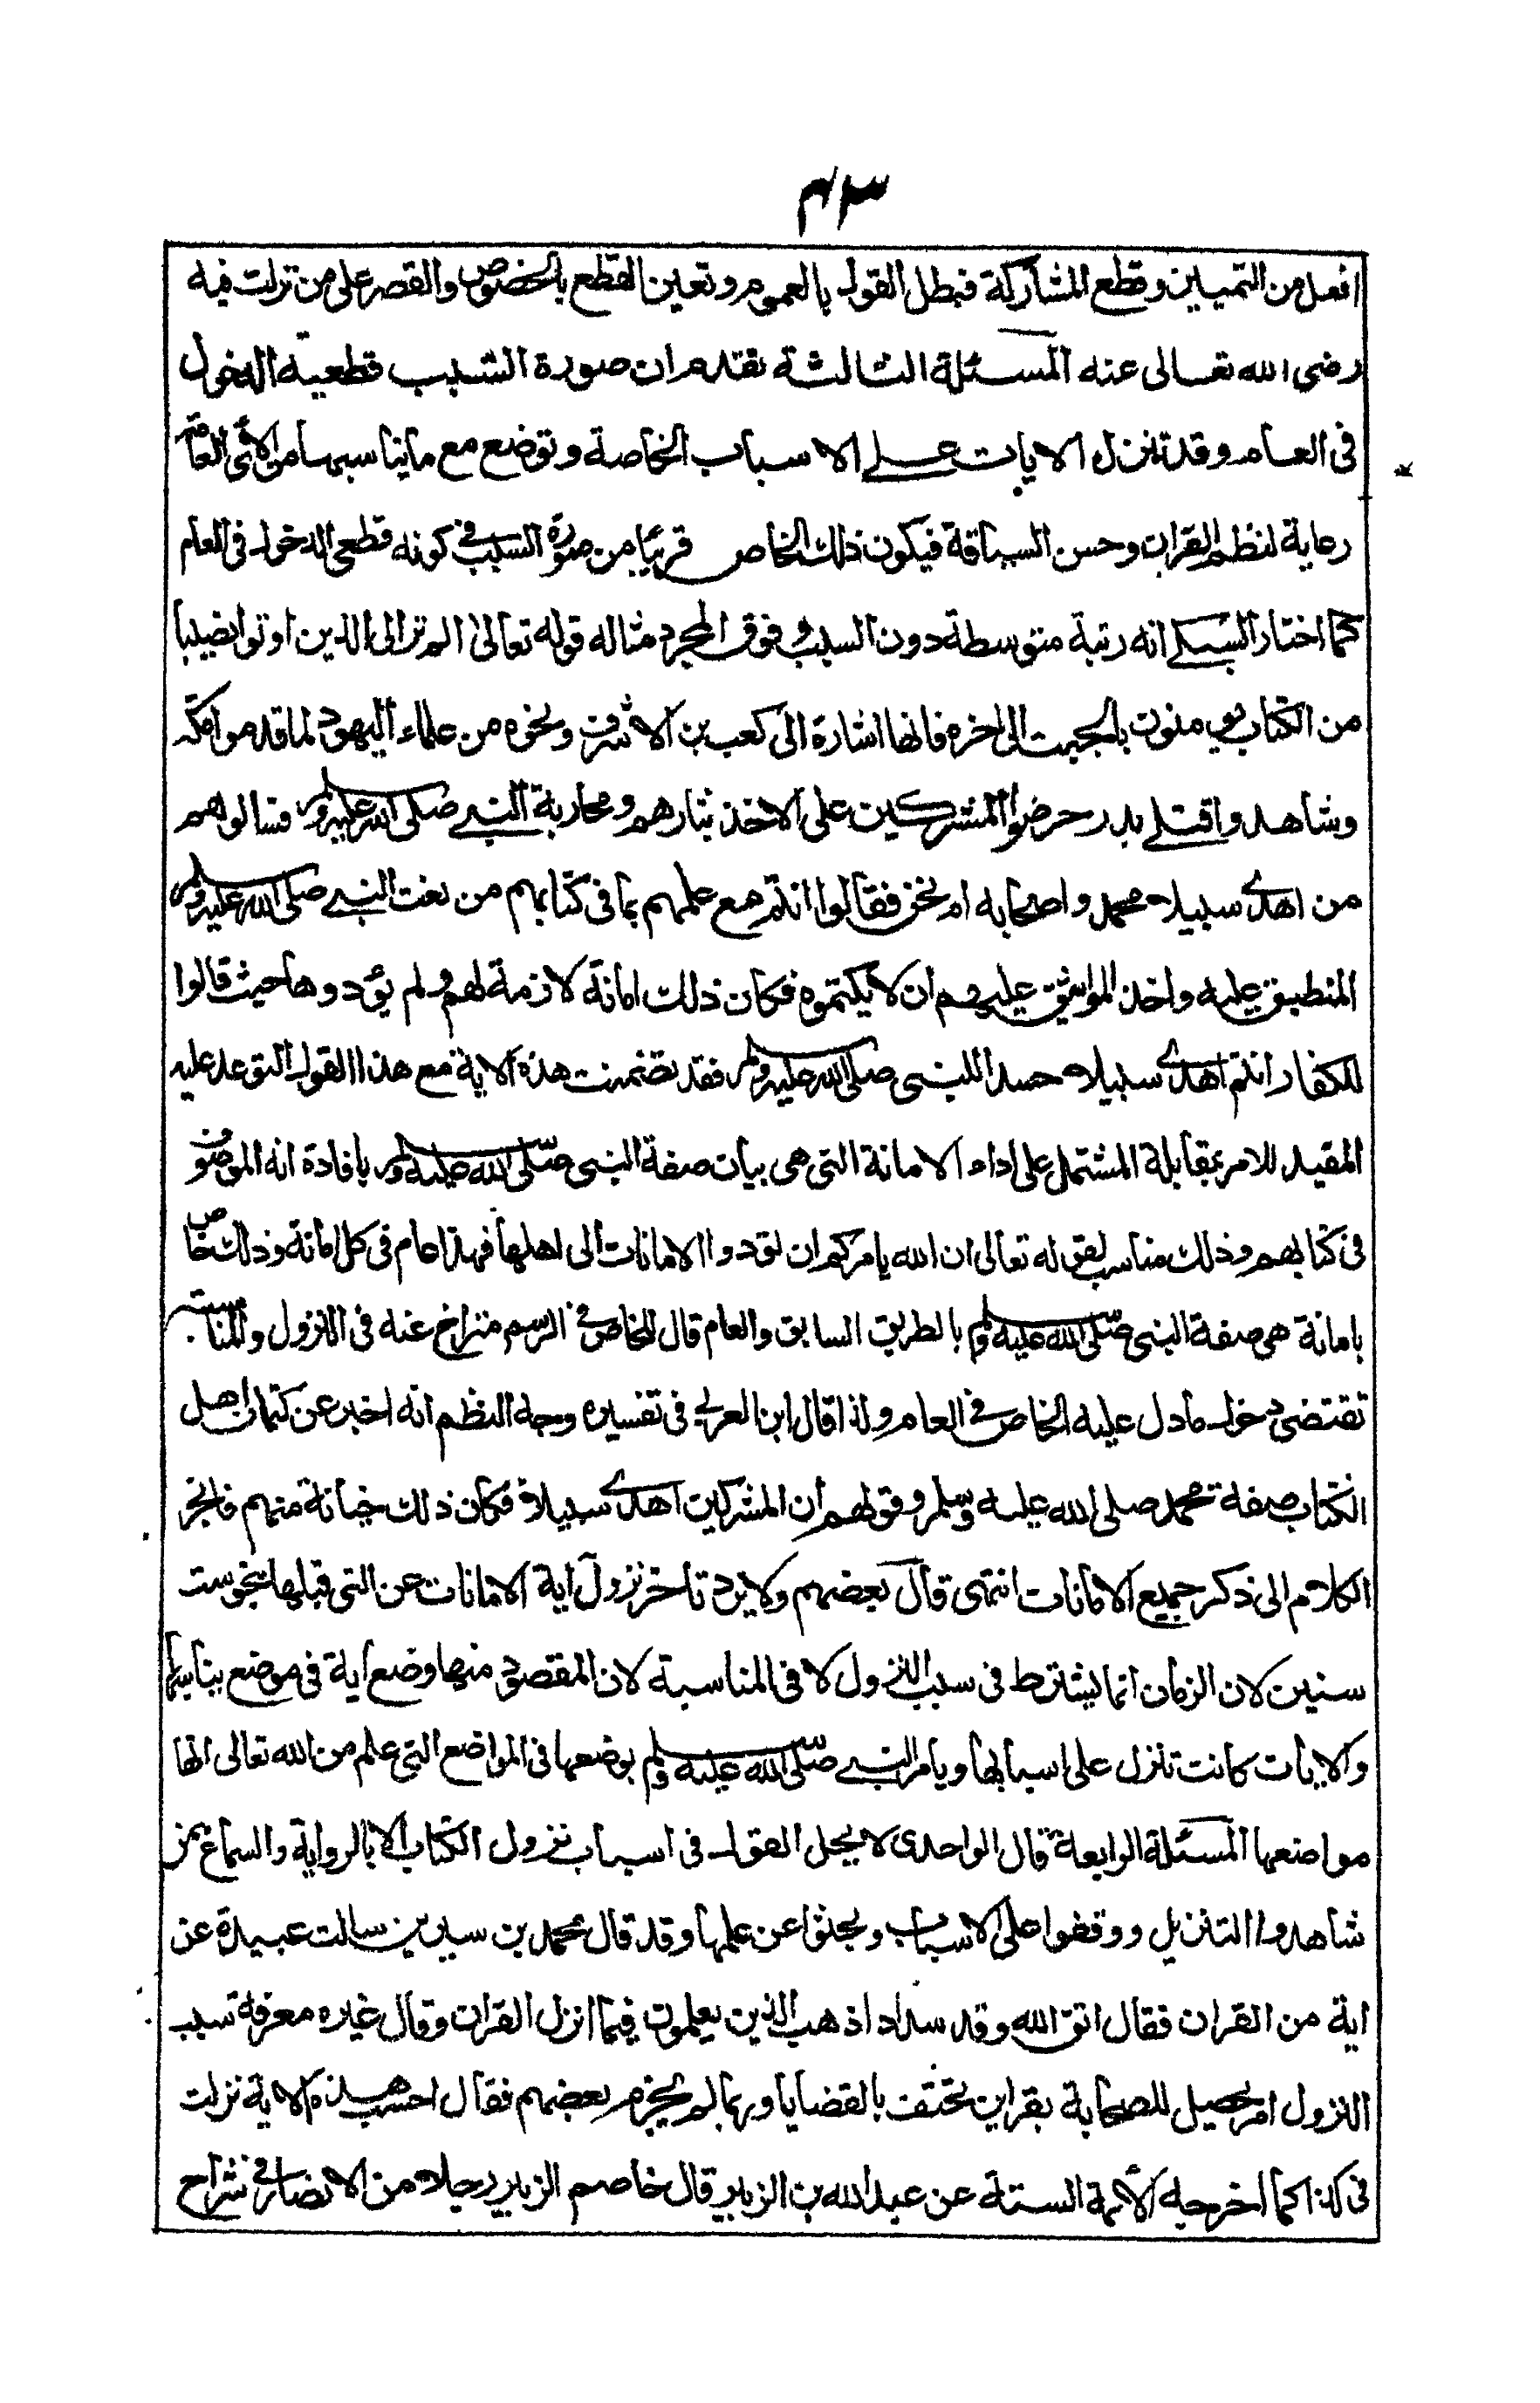 ۴۳
افعل من التمييز وقطع المشاركة فبطل القول بالعموم وتعين القطع بالخصوص والقصر على من نزلت فيه
رضى الله تعالى عنه المسئلة الثالثة تقدم ان صورة السبب قطعية الدخول
فى العام وقد تنزل الايات على الاسباب الخاصة وتوضع مع مايناسبها من الأى العامة
رعاية لنظم القران وحسن السياقة فيكون ذلك الخاص قريبا من صورة السبب فى كونه قطعى الدخول فى العام
كما اختار السبكى انه رتبة متوسطة دون السبب وفوق المجرد مثاله قوله تعالى الم تر الى الذين اوتوا نصيبا
من الكتاب يؤمنون بالجبت الى اخره فانها اشارة الى كعب بن الاشرف ونحوه من علماء اليهود لما قدموا مكة
وشاهدوا قتلى بدر حرضوا المشركين على الاخذ بثارهم ومحاربة النبى صلى الله عليه ولم فسالوهم
من اهدى سبيلا محمد واصحابه ام نحن فقالوا انتم مع علمهم بما فى كتابهم من نعت النبى صلى الله عليه ولم
المنطبق عليه واخذ المواثيق عليهم ان لا يكتموه فكان ذلك امانة لازمة لهم ولم يؤدوها حيث قالوا
للكفار انتم اهدى سبيلا حسدا للنبى صلى الله عليه ولم فقد تضمنت هذه الاية مع هذا القول التوعد عليه
المقيد للامر بمقابلة المشتمل على اداء الامانة التى هى بيان صفة النبى صلى الله عليه ولم بافادة انه الموصوف
فى كتابهم وذلك مناسب لقوله تعالى ان الله يامركم ان تؤدوا الامانات الى اهلها فهذا عام فى كل امانة وذلك خاص
بامانة هى صفة النبى صلى الله عليه ولم بالطريق السابق والعام قال للخاص فى الرسم متراخ عنه فى النزول والمناسبة
تقتضى دخول مادل عليه الخاص فى العام ولذا قال ابن العربى فى تفسيره وجه النظم انه اخبر عن كتمان اهل
الكتاب صفة محمد صلى الله عليه وسلم وقولهم ان المشركين اهدى سبيلا فكان ذلك خيانة منهم فانجر
الكلام الى ذكر جميع الامانات انتهى قال بعضهم ولا يرد تاخر نزول اية الامانات عن التى قبلها بنحو ست
سنين لان الزمان انما يشترط فى سبب النزول لا فى المناسبة لان المقصود منها وضع اية فى موضع يناسبها
والايات كانت تنزل على اسبابها ويامر النبى صلى الله عليه ولم بوضعها فى المواضع التى علم من الله تعالى انها
مواضعها المسئلة الرابعة قال الواحدى لا يحل القول فى اسباب نزول الكتاب الا بالرواية والسماع ممن
شاهدوا التنزيل ووقفوا على الاسباب وبحثوا عن علمها وقد قال محمد بن سيرين سالت عبيدة عن
اية من القران فقال اتق الله وقد سدادا ذهب الذين يعلمون فيما انزل القران وقال غيره معرفة سبب
النزول امر يحصل للصحابة بقراين تحتف بالقضايا وربما لم يجزم بعضهم فقال احسب هذه الاية نزلت
فى كذا كما اخرجه الأئمة الستة عن عبد الله بن الزبير قال خاصم الزبير رجلا من الانصار فى شراج